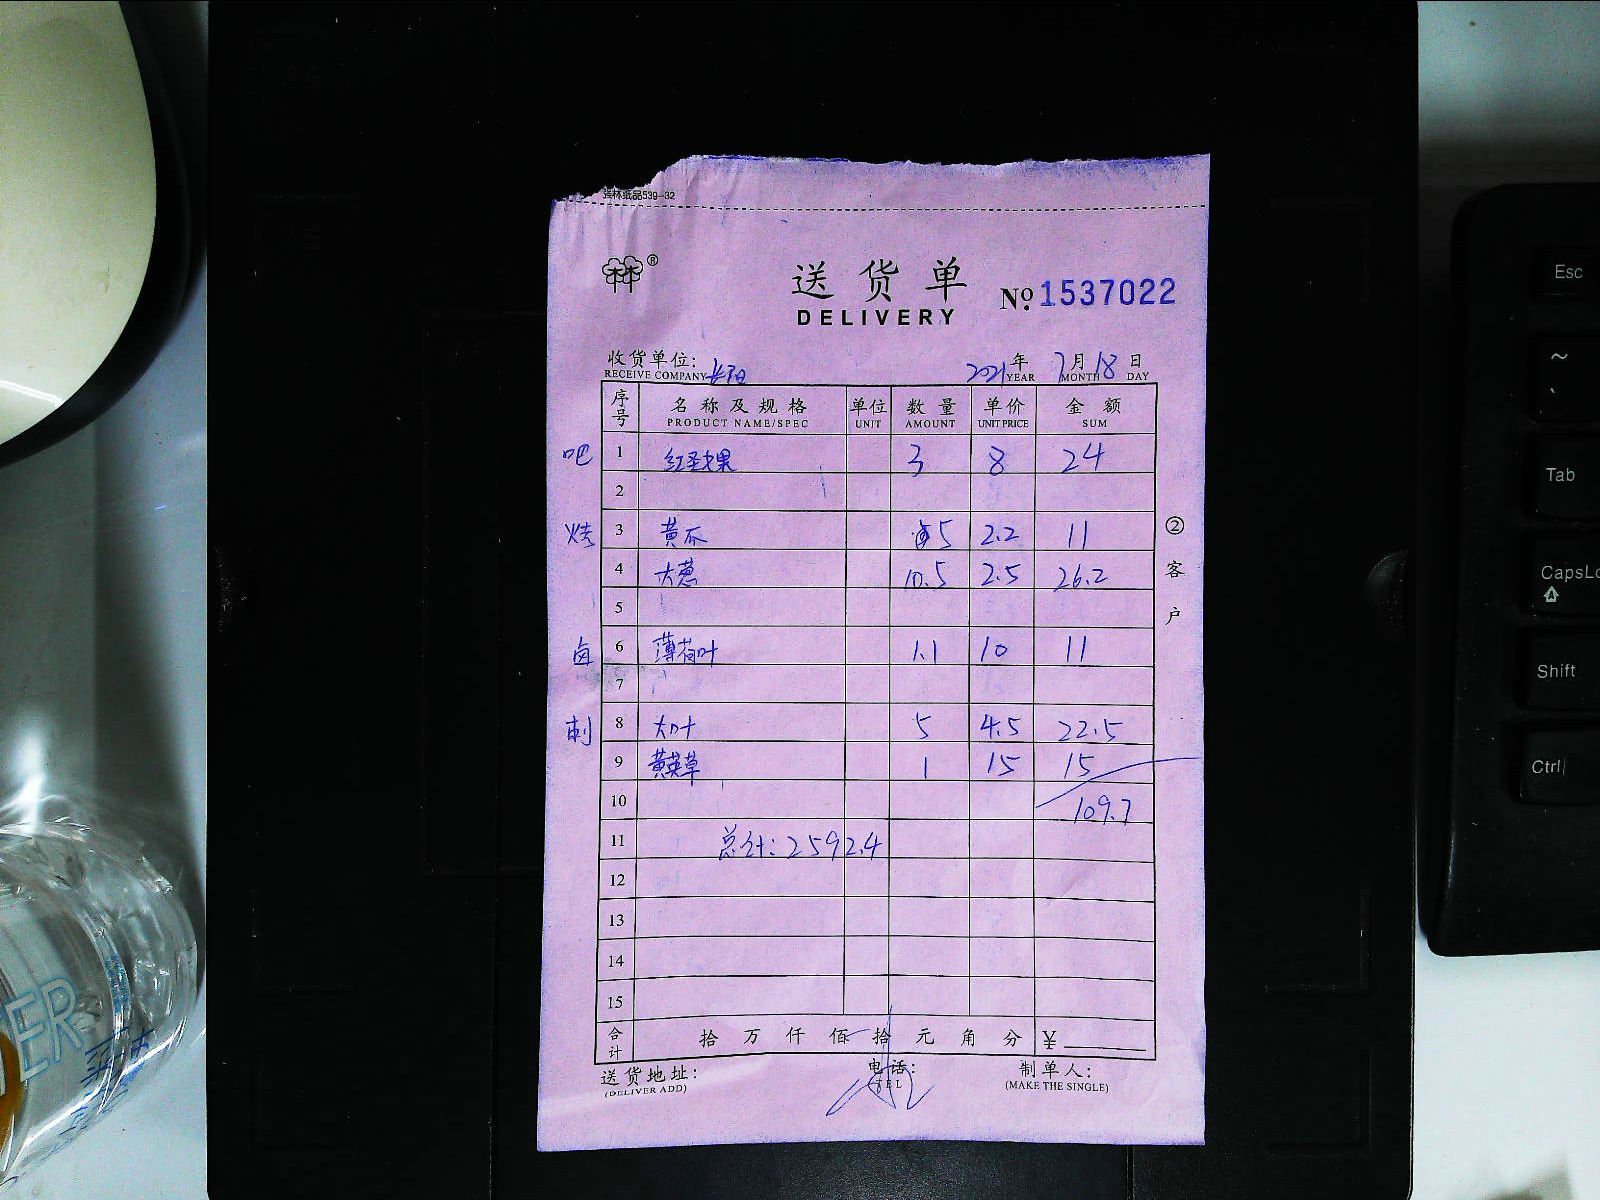 桂林纸品539-32
®
送货单 No. 1537022
DELIVERY
收货单位: 2021年 7月 18日
RECEIVE COMPANY YEAR MONTH DAY
序号 名称及规格 单位 数量 单价 金额
PRODUCT NAME/SPEC UNIT AMOUNT UNIT PRICE SUM
吧 1 红圣女果 3 8 24
2
烤 3 黄瓜 5 2.2 11
4 大葱 10.5 2.5 26.2
5
卤 6 薄荷叶 1.1 10 11
7
刺 8 大叶 5 4.5 22.5
9 黄英草 1 15 15
10 109.7
11 总计: 2592.4
12
13
14
15
② 客户
合计 拾万仟佰拾元角分 ¥
送货地址: 电话: 制单人:
(DELIVER ADD) TEL (MAKE THE SINGLE)
Esc
~
Tab
CapsLo
Shift
Ctrl
ER